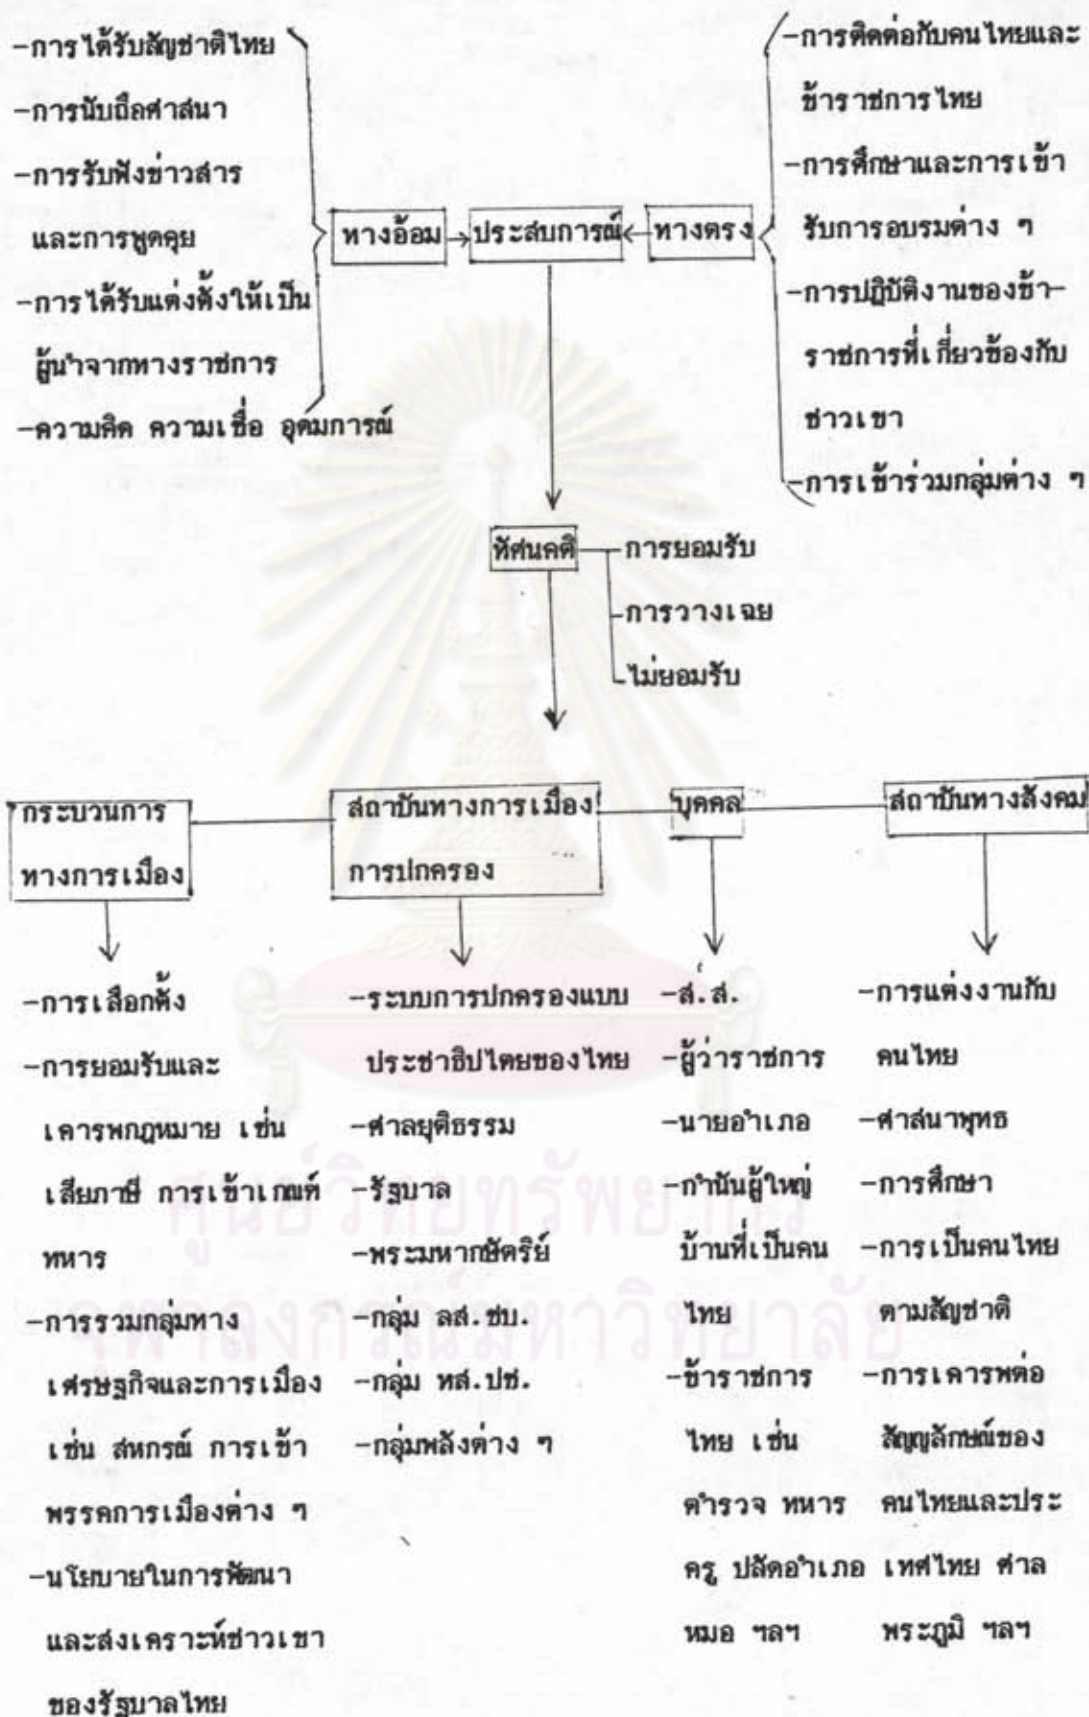 -การได้รับสัญชาติไทย
-การนับถือศาสนา
-การรับฟังข่าวสาร
และการพูดคุย
-การได้รับแต่งตั้งให้เป็น
ผู้นำจากทางราชการ
-ความคิด ความเชื่อ อุดมการณ์
ทางอ้อม
ประสบการณ์
ทางตรง
-การติดต่อกับคนไทยและ
ข้าราชการไทย
-การศึกษาและการเข้า
รับการอบรมต่าง ๆ
-การปฏิบัติงานของข้า-
ราชการที่เกี่ยวข้องกับ
ชาวเขา
-การเข้าร่วมกลุ่มต่าง ๆ
ทัศนคติ
การยอมรับ
-การวางเฉย
-ไม่ยอมรับ
กระบวนการ
ทางการเมือง
-การเลือกตั้ง
-การยอมรับและ
เคารพกฎหมาย เช่น
เสียภาษี การเข้าเกณฑ์
ทหาร
-การรวมกลุ่มทาง
เศรษฐกิจและการเมือง
เช่น สหกรณ์ การเข้า
พรรคการเมืองต่าง ๆ
-นโยบายในการพัฒนา
และสงเคราะห์ชาวเขา
ของรัฐบาลไทย
สถาบันทางการเมือง
การปกครอง
-ระบบการปกครองแบบ
ประชาธิปไตยของไทย
-ศาลยุติธรรม
-รัฐบาล
-พระมหากษัตริย์
-กลุ่ม ลส.ชบ.
-กลุ่ม ทส.ปช.
-กลุ่มพลังต่าง ๆ
บุคคล
-ส.ส.
-ผู้ว่าราชการ
-นายอำเภอ
-กำนันผู้ใหญ่
บ้านที่เป็นคน
ไทย
-ข้าราชการ
ไทย เช่น
ตำรวจ ทหาร
ครู ปลัดอำเภอ
หมอ ฯลฯ
สถาบันทางสังคม
-การแต่งงานกับ
คนไทย
-ศาสนาพุทธ
-การศึกษา
-การเป็นคนไทย
ตามสัญชาติ
-การเคารพต่อ
สัญญลักษณ์ของ
คนไทยและประ
เทศไทย ศาล
พระภูมิ ฯลฯ
ศูนย์วิทยทรัพยากร
จุฬาลงกรณ์มหาวิทยาลัย